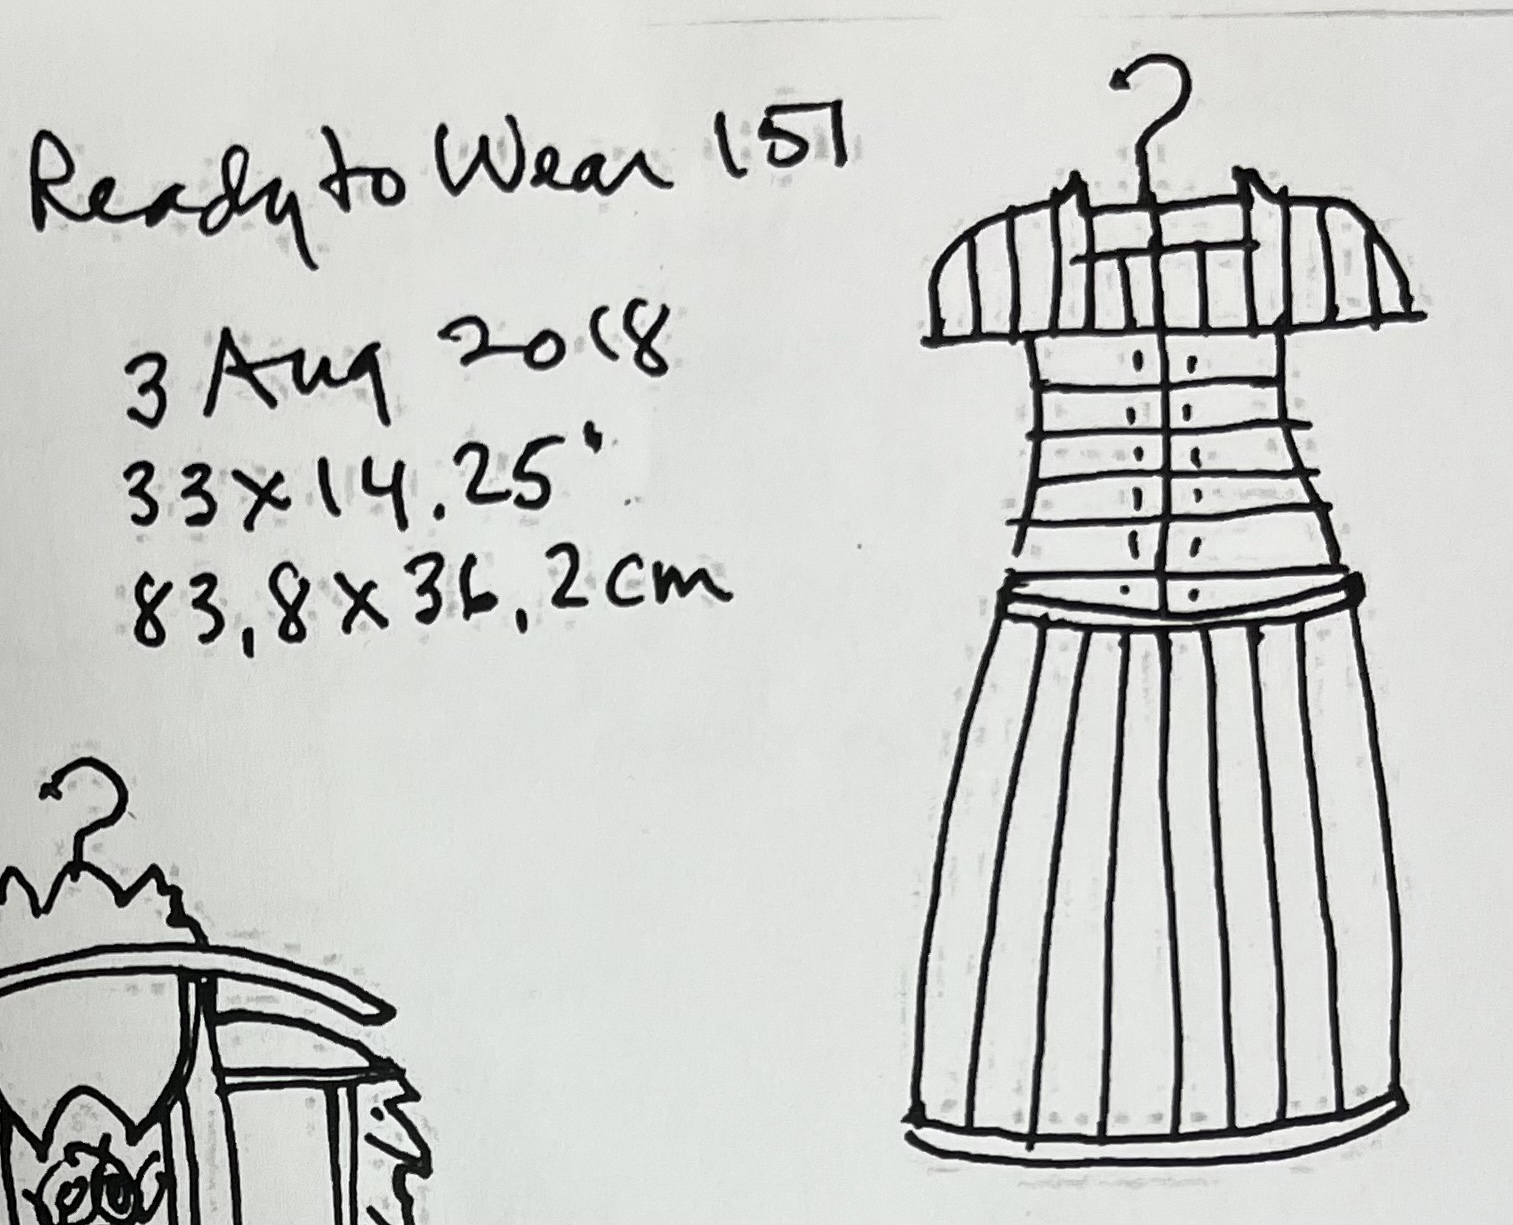 Ready to Wear 157
3 Aug 2018
33x14.25"
83,8x36,2cm